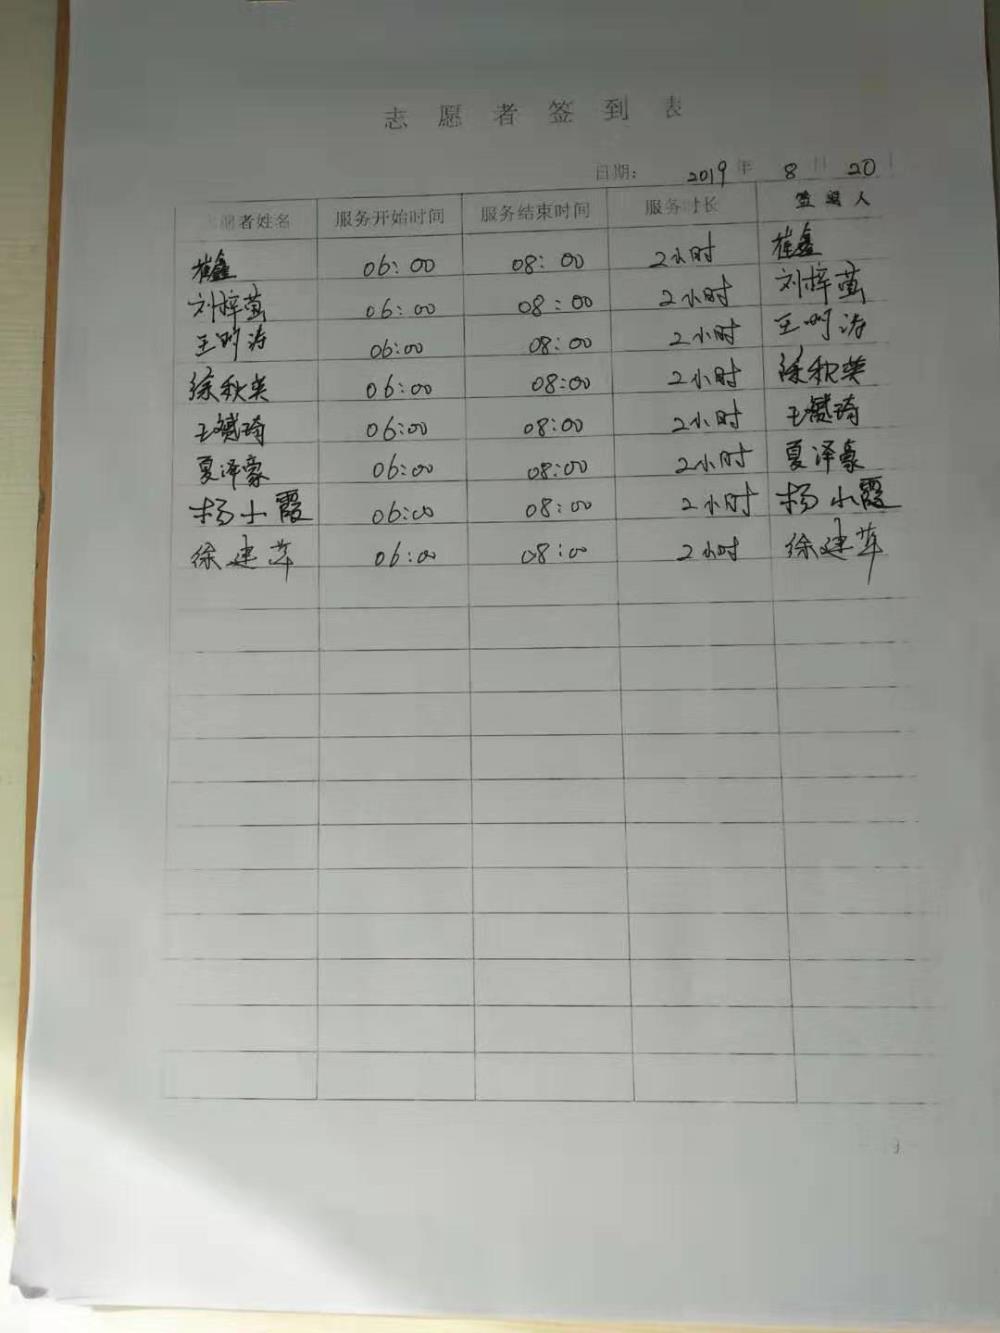 志愿者签到表
日期： 2019年 8月 20
志愿者姓名 服务开始时间 服务结束时间 服务时长 签退人
崔鑫 06:00 08:00 2小时 崔鑫
刘梓萤 06:00 08:00 2小时 刘梓萤
王 涛 06:00 08:00 2小时 王 涛
徐秋英 06:00 08:00 2小时 徐秋英
王 琦 06:00 08:00 2小时 王 琦
夏泽豪 06:00 08:00 2小时 夏泽豪
杨小霞 06:00 08:00 2小时 杨小霞
徐建萍 06:00 08:00 2小时 徐建萍